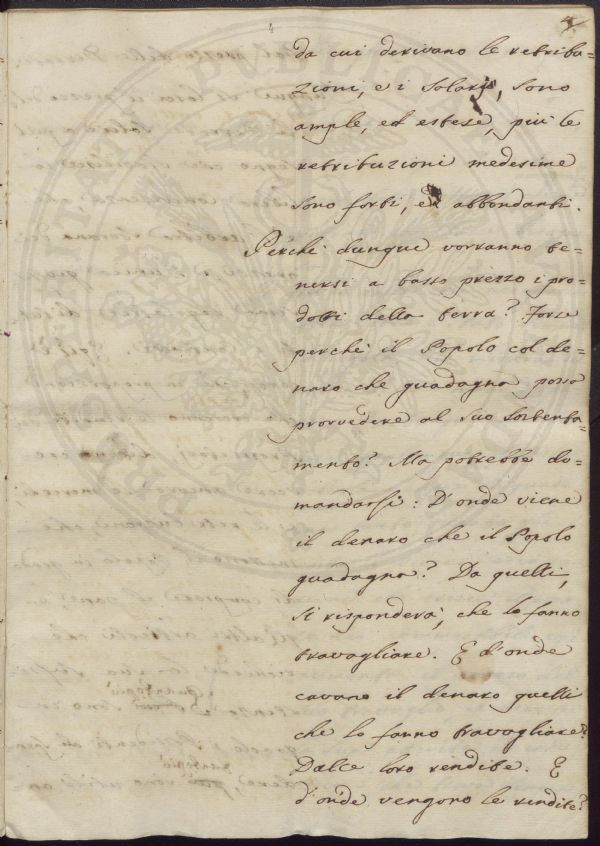 4
da cui derivano le retribu=
zioni, e i Solarj, sono
ample, ed estese, più le
retribuzioni medesime
sono forti, ed abbondanti.
Perchè dunque vorranno te=
nersi a basso prezzo i pro=
dotti della terra? Forse
perchè il Popolo col de=
naro che guadagna possa
provvedere al suo sostenta=
mento? Ma potrebbe do=
mandarsi: D'onde viene
il denaro che il Popolo
guadagna? Da quelli,
si risponderà, che lo fanno
travagliare. E d'onde
cavano il denaro quelli
che lo fanno travagliare?
Dalle loro rendite. E
d'onde vengono le rendite?